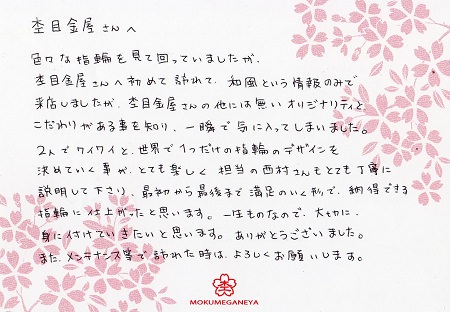 杢目金屋さんへ
色々な指輪を見て回っていましたが、
杢目金屋さんへ初めて訪れて、和風という情報のみで
来店しましたが、杢目金屋さんの他には無いオリジナリティと、
こだわりがある事を知り、一瞬で気に入ってしまいました。
2人でワイワイと、世界で1つだけの指輪のデザインを
決めていく事が、とても楽しく担当の西村さんもとても丁寧に
説明して下さり、最初から最後まで満足のいく形で、納得できる
指輪に仕上がったと思います。一生ものなので、大切に、
身に付けていきたいと思います。ありがとうございました。
また、メンテナンス等で訪れた時は、よろしくお願いします。
杢
MOKUMEGANEYA